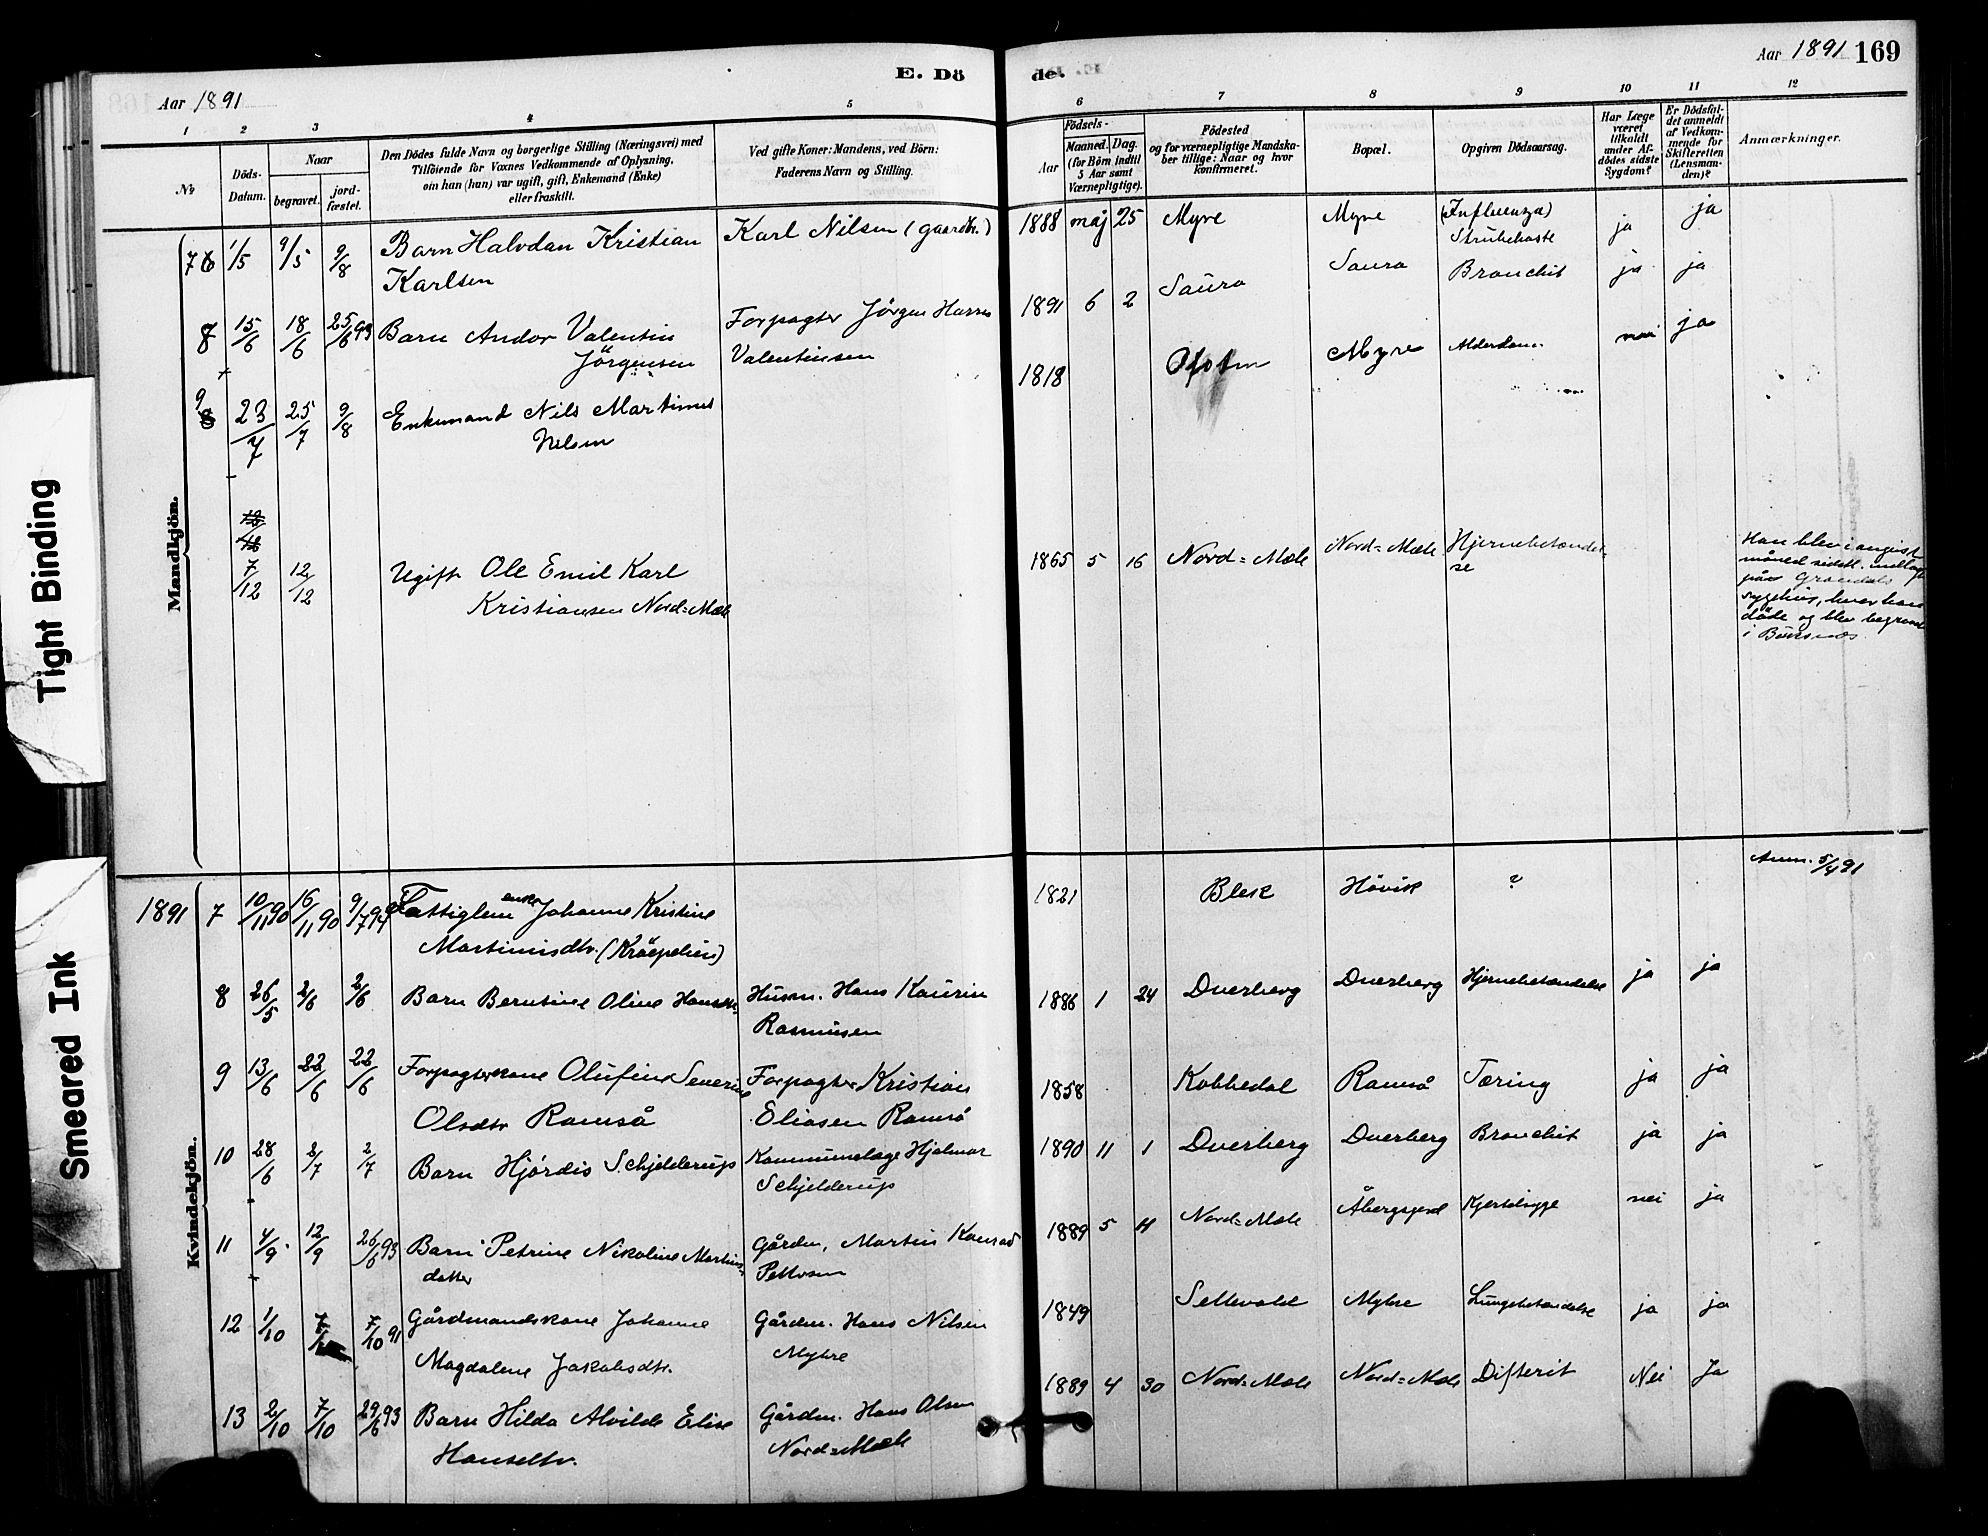 E. Dö
de.
Aar 1891
Aar 1891 169
1 2 3 4 5
6 7 8 9 10 11 12
No
Döds-
Datum.
Naar
begravet.
jord-
fæstet.
Den Dödes fulde Navn og borgerlige Stilling (Næringsvei) med
Tilföiende for Voxnes Vedkommende af Oplysning,
om han (hun) var ugift, gift, Enkemand (Enke)
eller fraskilt.
Ved gifte Koner: Mandens, ved Börn:
Faderens Navn og Stilling.
Födsels-
Aar
Maaned. Dag.
(for Börn indtil
5 Aar samt
Værnepligtige).
Födested
og for værnepligtige Mandska-
ber tillige: Naar og hvor
konfirmeret.
Bopæl.
Opgiven Dödsaarsag.
Har Læge
været
tilkaldt
under Af-
dödes sidste
Sygdom?
Er Dödsfal-
det anmeldt
af Vedkom-
mende for
Skifteretten
(Lensman-
den)?
Anmærkninger.
Mandkjön.
7 1/5 9/5 9/8 Barn Halvdan Kristian
Karlsen
Karl Nilsen (gaardbr.)
1888 maj 25 Myre Myre (Influenza)
Strubehoste
ja ja
8 15/6 18/6 25/6 93 Barn Andor Valentin
Jörgensen
Forpagter Jörgen Hansen
Valentinsen
1891 6 2 Saura Saura Bronchit ja ja
9 23/7 25/7 9/8 Enkemand Nils Martinus
Nilsen
1818 Ofoten Myre Alderdom nei ja
7/12 12/12 Ugift Ole Emil Karl
Kristiansen Nord=Mæle
1865 5 16 Nord=Mæle Nord=Mæle Hjernebetændel-
se
Han blev i august
måned sidstl. indlagt
på Gravdals
sygehus, hvor han
döde og blev begravet
i Buksnæs.
Kvindekjön.
1891 7 10/11 90 16/11 90 9/7 94 Fattiglem enke Johanne Kristine
Martinusdtr. (Kräpelien)
1821 Bleik Hövik ?
Anm. 5/4 91
8 26/5 2/6 2/6 Barn Berntine Oline Hansdtr.
Husm. Hans Kaurin
Rasmussen
1886 1 24 Dverberg Dverberg Hjernebetændelse ja ja
9 13/6 22/6 22/6 Forpagterkone Olufine Severine
Olsdtr Ramså
Forpagter Kristian
Eliasen Ramså
1858 Kobbedal Ramså Tæring ja ja
10 28/6 2/7 2/7 Barn Hjördis Schjelderup
Kommunelæge Hjalmar
Schjelderup
1890 11 1 Dverberg Dverberg Bronchit ja ja
11 4/9 12/9 26/6 93 Barn Petrine Nikoline Martins=
datter
Gårdm, Martin Konrad
Pettersen
1889 5 Nord=Mæle Åbergsjord nei ja
12 1/10 7/10 91 Gårdmandskone Johanne
Magdalene Jakobsdtr.
Gårdm. Hans Nilsen
Myhre
1849 Sellevold Myhre Lungebetændelse ja ja
13 2/10 7/10 29/6 93 Barn Hilda Alvilde Elise
Hansdtr.
Gårdm. Hans Olsen
Nord=Mæle
1889 4 30 Nord=Mæle Nord=Mæle Difterit Nei Ja
Tight Binding
Smeared Ink